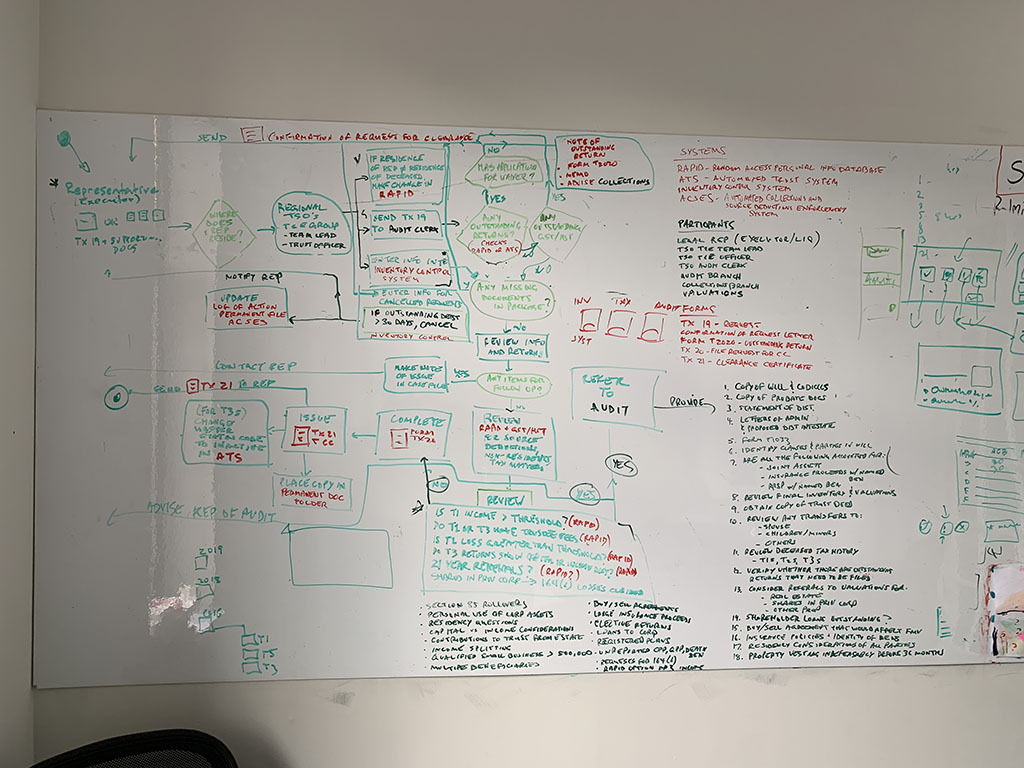 SEND CONFIRMATION OF REQUEST FOR CLEARANCE
Representative
(Executor)
OR
TX 19 + SUPPORTING
DOCS
WHERE
DOES
REP
RESIDE?
REGIONAL
TSO'S
T & E GROUP
- TEAM LEAD
- TRUST OFFICER
IF RESIDENCE
OF REP ≠ RESIDENCE
OF DECEASED
MAKE CHANGE IN
RAPID
SEND TX 19
TO AUDIT CLERK
ENTER INFO INTO
INVENTORY CONTROL
SYSTEM
ENTER INFO FOR
CANCELED REQUEST
IF OUTSTANDING DEBT
> 30 DAYS, CANCEL
INVENTORY CONTROL
NO
HAS APPLICATION
FOR WAIVER?
YES
YES
ANY
OUTSTANDING
RETURNS?
CHECKS
RAPID OR ATS
ANY
OUTSTANDING
GST/HST
NO
NOTE OF
OUTSTANDING
RETURN
FORM T2020
MEMO
ADVISE COLLECTIONS
ANY MISSING
DOCUMENTS
IN PACKAGE?
NO
REVIEW INFO
AND RETURN
ANY ITEMS FOR
FOLLOW UP?
YES
NO
MAKE NOTE
OF ISSUE
IN CASE FILE
NOTIFY REP
UPDATE
LOG OF ACTION
PERMANENT FILE
ACSES
CONTACT REP
SEND TX 21 TO REP
(FOR T3S)
CHANGE
STATUS CODE
TO INACTIVE
IN ATS
ISSUE
TX 21
CC
COMPLETE
FORM
TX 20
PLACE COPY IN
PERMANENT DOC
FOLDER
REVIEW
RAPID + GST/HST
OR SOURCE
DEDUCTIONS,
NON-RESIDENT
TAX MATTERS
REFER
TO
AUDIT
PROVIDE
YES
YES
NO
ADVISE REP OF AUDIT
REVIEW
IS T1 INCOME > THRESHOLD? (RAPID)
DO T1 OR T3 HAVE TRUSTEE FEES (RAPID)
IS T1 LOSS GREATER THAN THRESHOLD? (RAPID)
21 YEAR (RAPID?)
SHARES IN PRIV CORP → 164(6) LOSSES
2019
2018
T1
T5
T3
SECTION 85 ROLLOVERS
PERSONAL USE OF CORP ASSETS
RESIDENCY QUESTIONS
CAPITAL VS INCOME CONSIDERATIONS
CONTRIBUTIONS TO TRUST FROM ESTATE
INCOME SPLITTING
QUALIFIED SMALL BUSINESS > 500,000
MULTIPLE BENEFICIARIES
BUY/SELL AGREEMENTS
LARGE INSURANCE PROCEEDS
ELECTIVE RETURNS
LOANS TO CORP
REGISTERED PLANS
UNREPORTED CPP, RPP, DEATH
BEN
REQUESTS FOR 164(6)
SYSTEMS
RAPID - RANDOM ACCESS PERSONAL INFO DATABASE
ATS - AUTOMATED TRUST SYSTEM
INVENTORY CONTROL SYSTEM
ACSES - AUTOMATED COLLECTIONS AND
SOURCE DEDUCTIONS ENFORCEMENT
SYSTEM
PARTICIPANTS
LEGAL REP (EXECUTOR/LIQ)
TSO T&E TEAM LEAD
TSO T&E OFFICER
TSO AUDIT CLERK
AUDIT BRANCH
COLLECTIONS BRANCH
VALUATIONS
INV
SYST
AUDIT FORMS
TX 19 - REQUEST
CONFIRMATION OF REQUEST LETTER
FORM T2020 - OUTSTANDING RETURN
TX 20 - FILE REQUEST FOR CC
TX 21 - CLEARANCE CERTIFICATE
1. COPY OF WILL & CODICILS
2. COPY OF PROBATE DOCS
3. STATEMENT OF DIST.
4. LETTERS OF ADMIN
& PROPOSED DIST INTESTATE
5. FORM
6. IDENTIFY CLAUSES & PARTIES IN WILL
7. ARE ALL THE FOLLOWING ACCOUNTED FOR:
- JOINT ASSETS
- INSURANCE PROCEEDS W/ NAMED
BEN
- RRSP W/ NAMED BEN
8. REVIEW FINAL INVENTORY & VALUATIONS
9. OBTAIN COPY OF TRUST DEED
10. REVIEW ANY TRANSFERS TO:
- SPOUSE
- CHILDREN/MINORS
- OTHERS
11. REVIEW DECEASED TAX HISTORY
- T1s, T2s, T3s
12. VERIFY WHETHER THERE ARE OUTSTANDING
RETURNS THAT NEED TO BE FILED
13. CONSIDER REFERRALS TO VALUATIONS FOR:
- REAL ESTATE
- SHARES IN PRIV CORP
- OTHER PROP
14. SHAREHOLDER LOANS OUTSTANDING?
15. BUY/SELL AGREEMENT THAT WOULD AFFECT FMV
16. INSURANCE POLICIES + IDENTITY OF BENS
17. RESIDENCY CONSIDERATIONS OF ALL PARTIES
18. PROPERTY VESTING INDEFEASIBLY BEFORE 36 MONTHS
Ownership
ACB